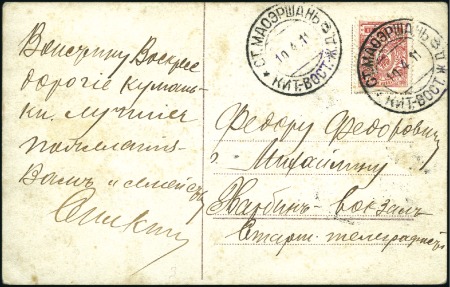 Воистину Воскресе
дорогіе Кумань-
ки. лучшія
пожеланія
Вамъ и семейс
СТ. МАОЭРШАНЬ В. Д.
10.4.11
КИТ.-ВОСТ. Ж.
СТ. МАОЭРШАНЬ В. Д.
10.4.11
КИТ.-ВОСТ. Ж.
Федору Федоровичу
г. Михайлину
Харбинъ-вокзалъ
Старш. телеграфистъ